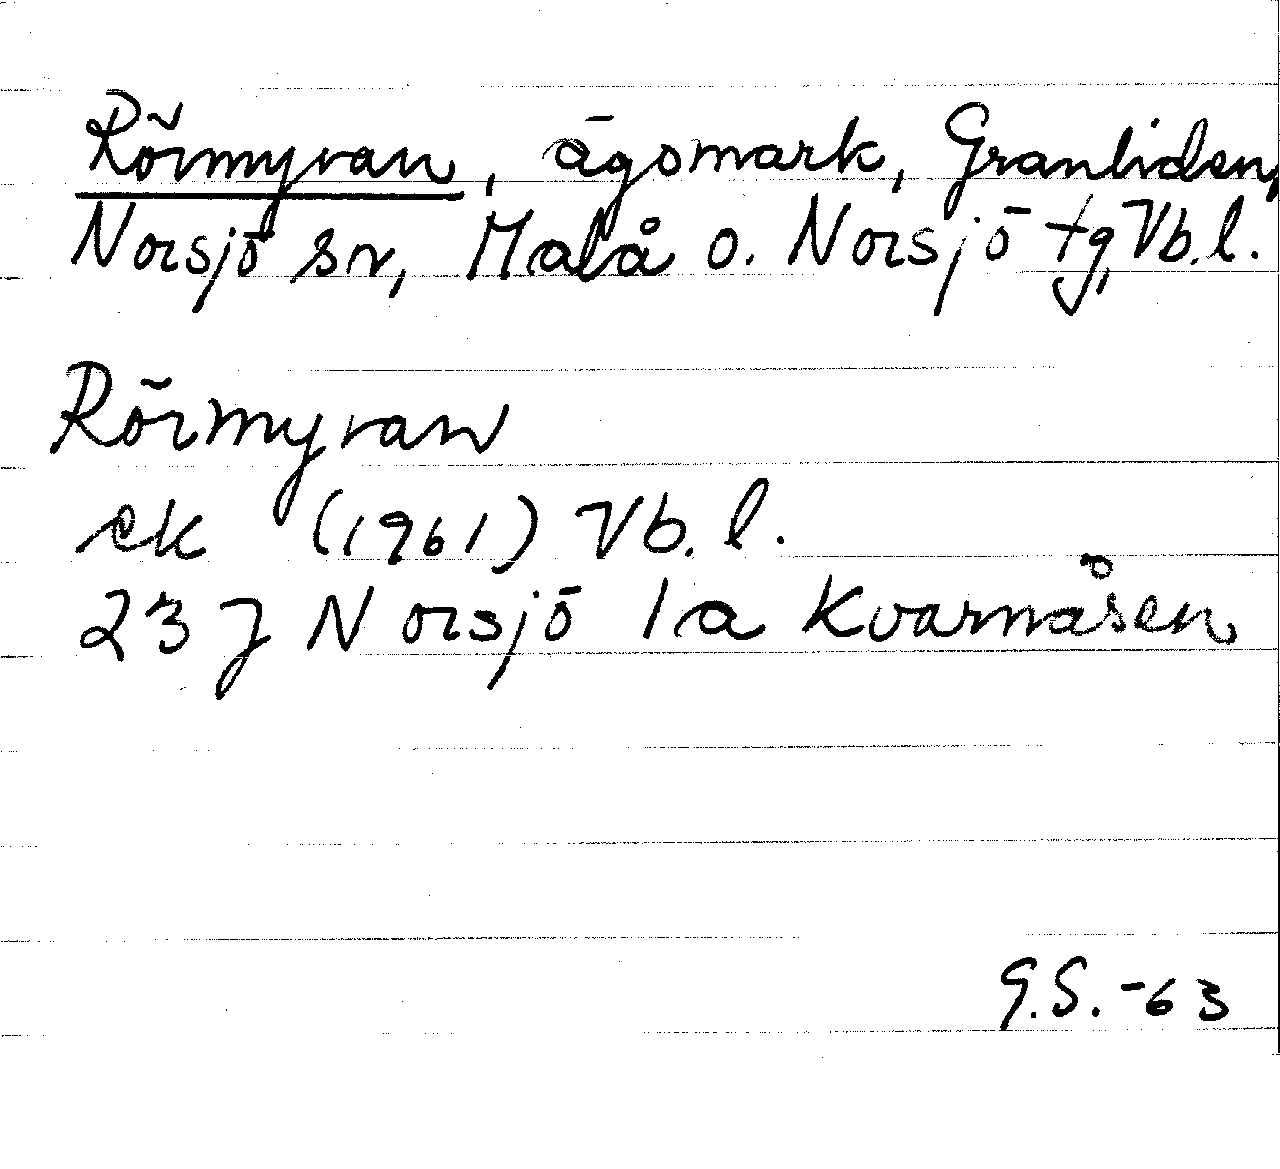 Rörmyran, ägomark, Granliden,
Norsjö sn, Malå o. Norsjö tg, Vb.l.
Rörmyran
ek (1961) Vb. l.
23 J Norsjö 1a Kvarnåsen
G.S. -63